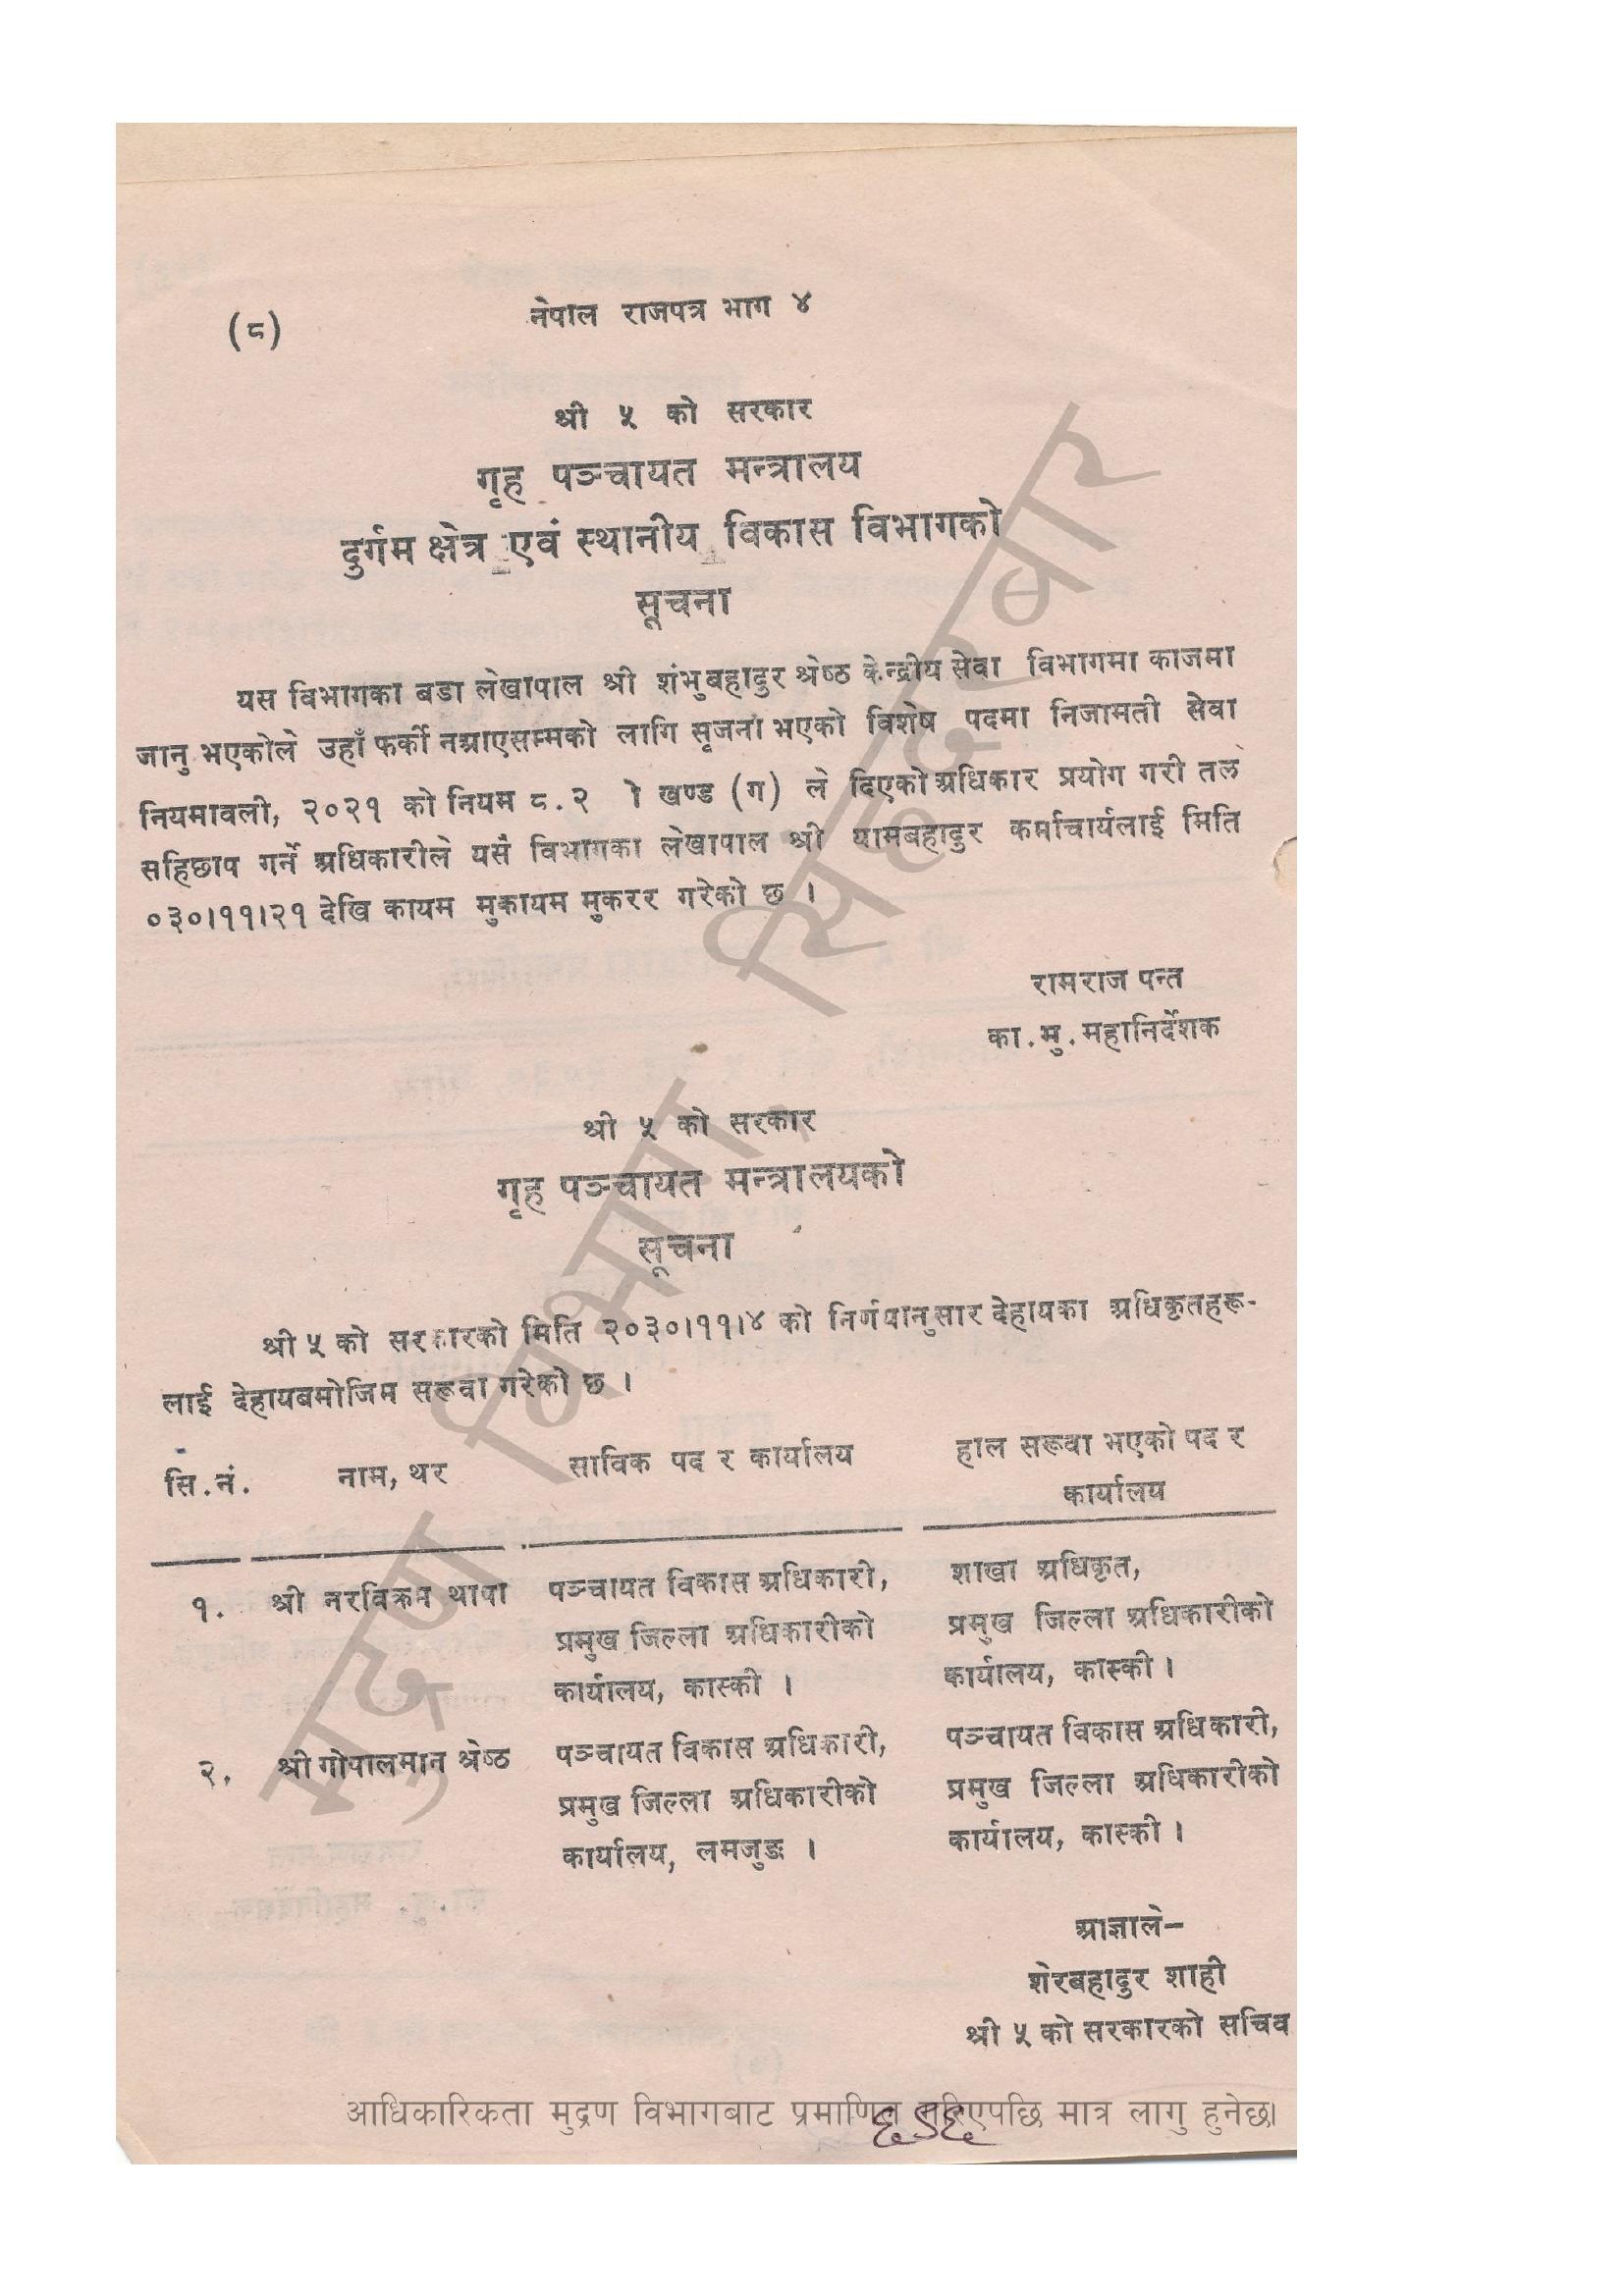 (८)
नेपाल राजपत्र भाग ४
श्री ५ को सरकार
गृह पञ्चायत मन्त्रालय
दुर्गम क्षेत्र एवं स्थानीय विकास विभागको
सूचना
यस विभागका बडा लेखापाल श्री शंभुबहादुर श्रेष्ठ केन्द्रीय सेवा विभागमा काजमा
जानु भएकोले उहाँ फर्की नआएसम्मको लागि सृजना भएको विशेष पदमा निजामती सेवा
नियमावली, २०२१ को नियम ८.२ ो खण्ड (ग) ले दिएको अधिकार प्रयोग गरी तल
सहिछाप गर्ने अधिकारीले यसै विभागका लेखापाल श्री यामबहादुर कर्माचार्यलाई मिति
०३०।११।२१ देखि कायम मुकायम मुकरर गरेको छ ।
रामराज पन्त
का.मु.महानिर्देशक
श्री ५ को सरकार
गृह पञ्चायत मन्त्रालयको
सूचना
श्री ५ को सरकारको मिति २०३०।११।४ को निर्णयानुसार देहायका अधिकृतहरू-
लाई देहायबमोजिम सरूवा गरेको छ ।
सि.नं. नाम, थर साविक पद र कार्यालय हाल सरूवा भएको पद र
कार्यालय
१. श्री नरविक्रम थापा पञ्चायत विकास अधिकारी, शाखा अधिकृत,
प्रमुख जिल्ला अधिकारीको प्रमुख जिल्ला अधिकारीको
कार्यालय, कास्की । कार्यालय, कास्की ।
२. श्री गोपालमान श्रेष्ठ पञ्चायत विकास अधिकारी, पञ्चायत विकास अधिकारी,
प्रमुख जिल्ला अधिकारीको प्रमुख जिल्ला अधिकारीको
कार्यालय, लमजुङ । कार्यालय, कास्की ।
आज्ञाले–
शेरबहादुर शाही
श्री ५ को सरकारको सचिव
मुद्रण विभाग, सिंहदरबार
आधिकारिकता मुद्रण विभागबाट प्रमाणित गरिएपछि मात्र लागु हुनेछ।